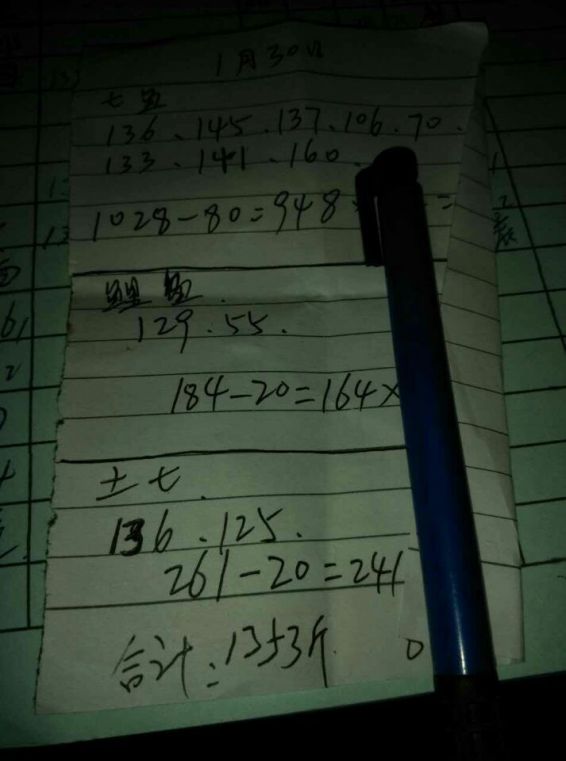 1月30日
七
136、145、137、106、70、
133、141、160
1028-80=948
129、55、
184-20=164×
土七
136、125、
261-20=241
合计:1353斤